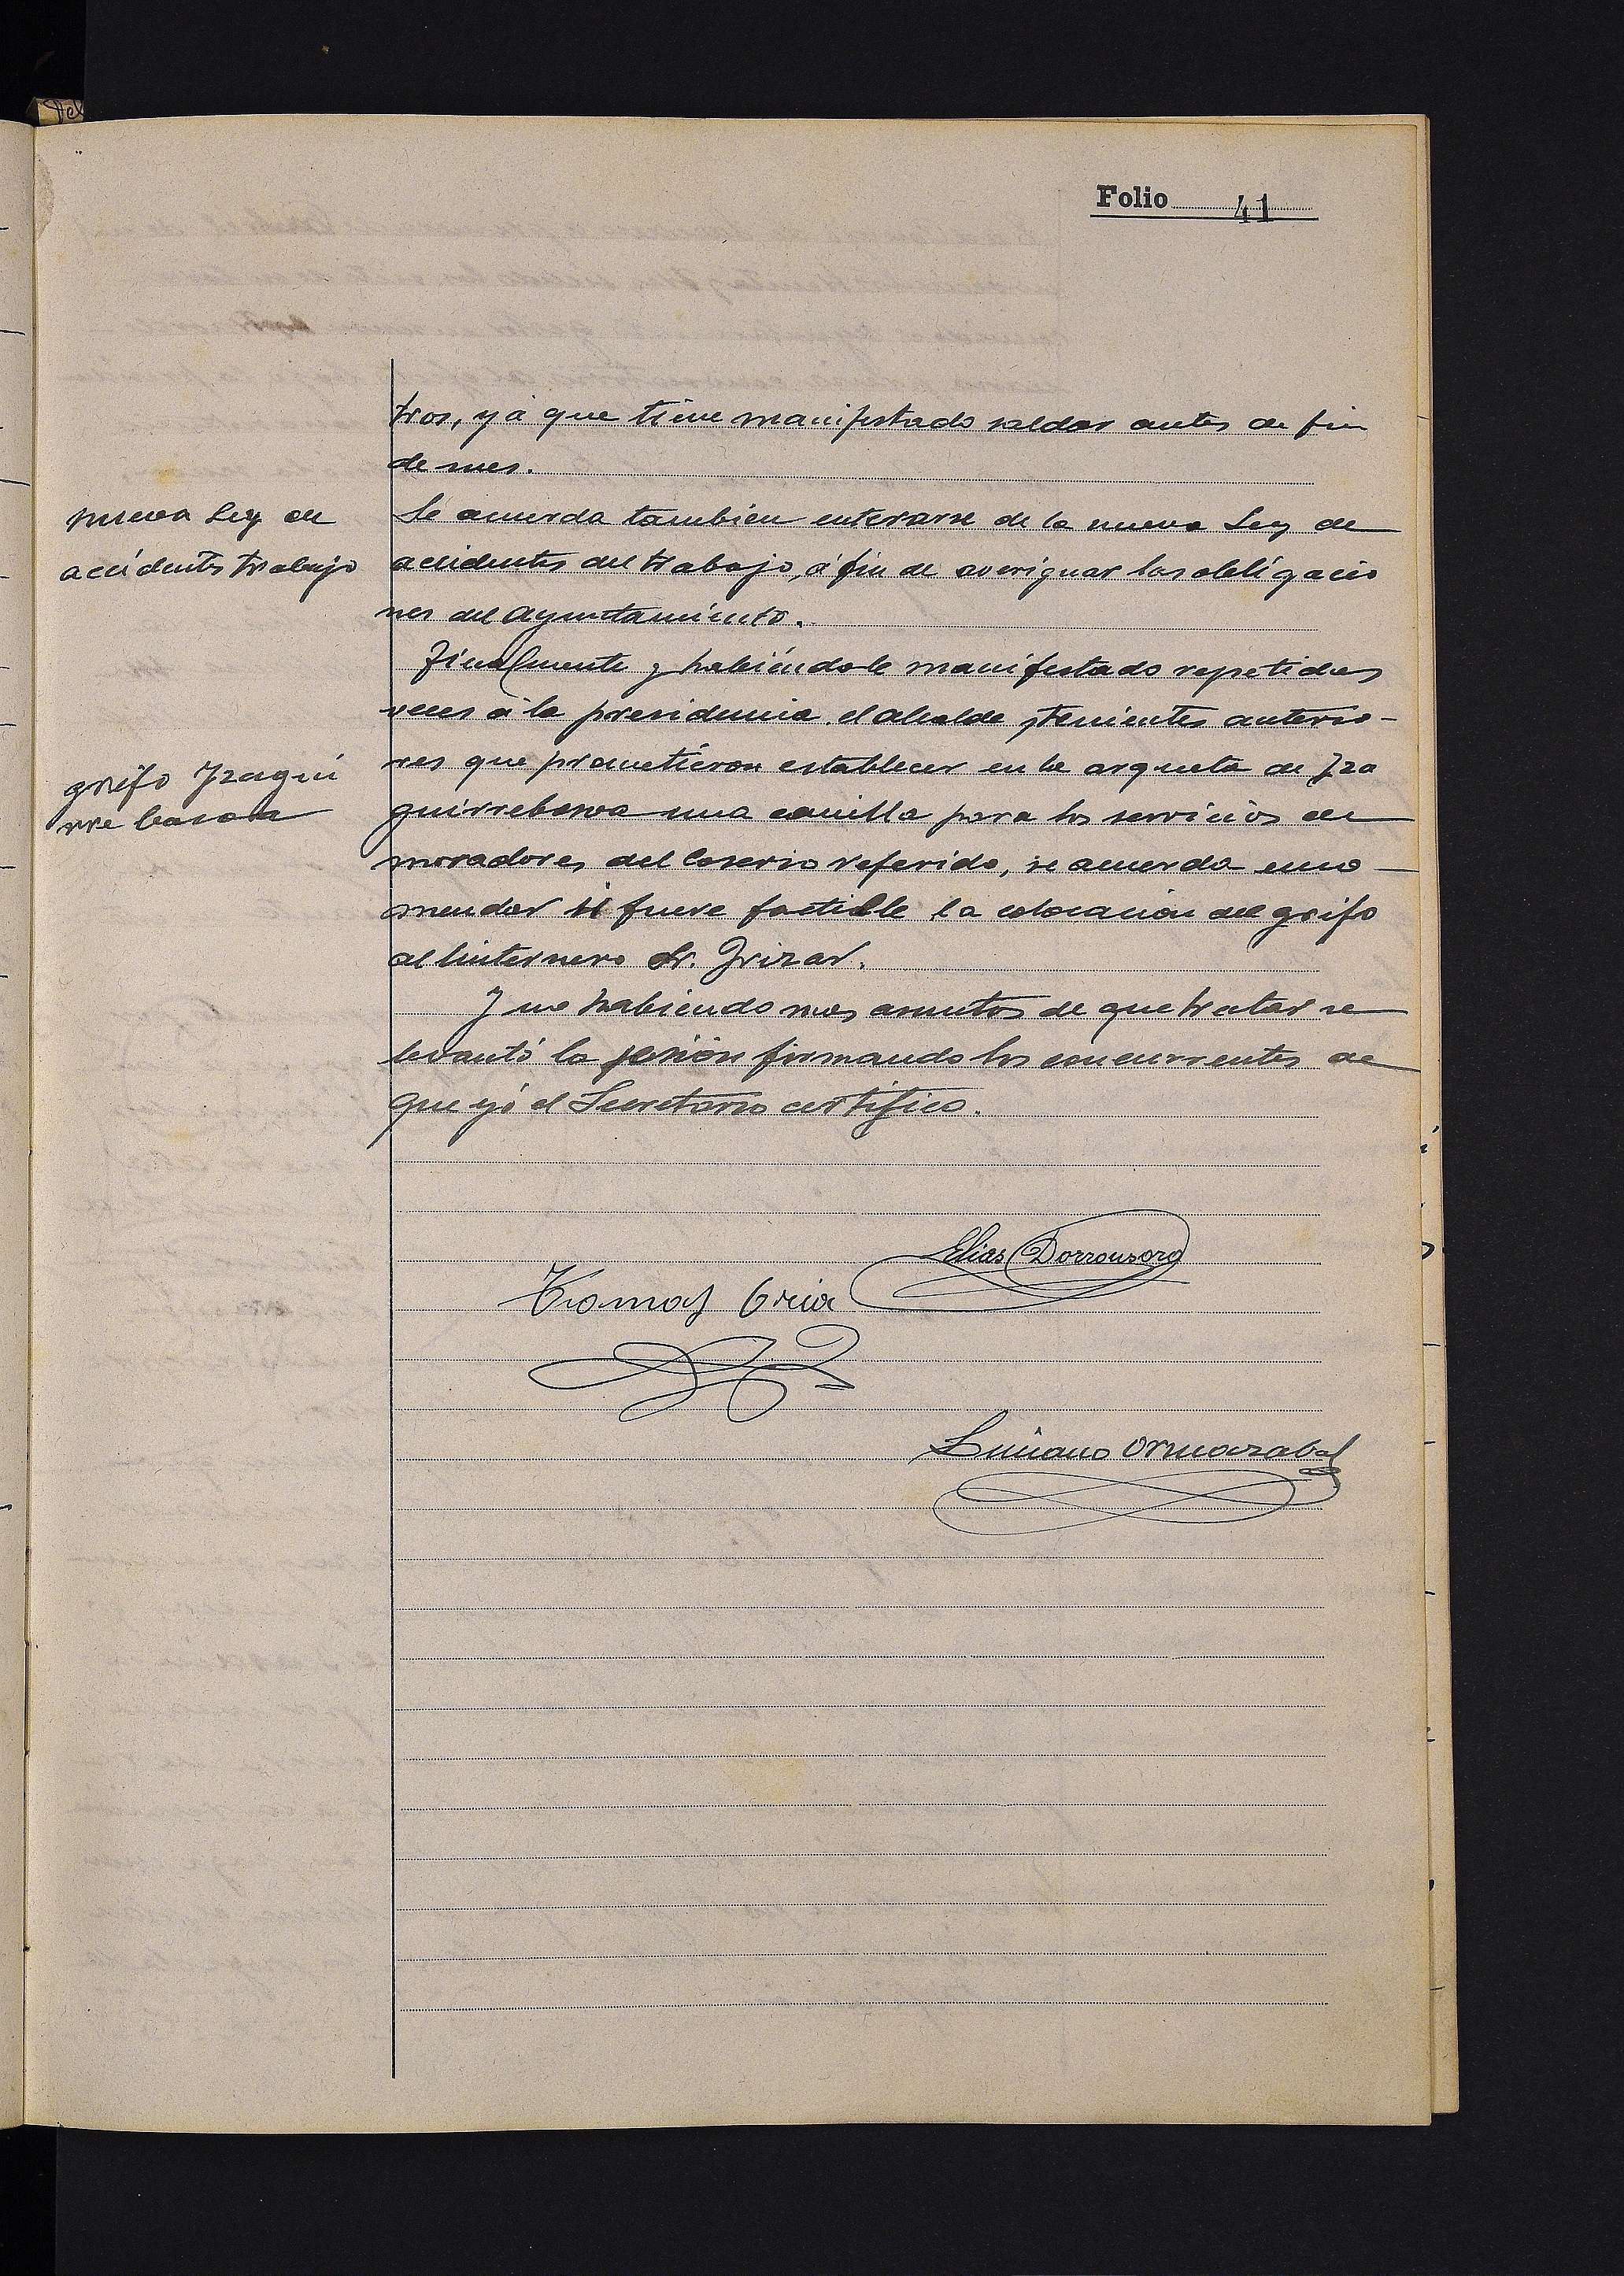 Folio 41
tros, yá que tiene manifestado saldar antes de fin
de mes.
nueva Ley de
accidentes trabajo
Se acuerda tambien enterarse de la nueva Ley de
accidentes del trabajo, á fin de averiguar las obligacio
nes del Ayuntamiento.
Finalmente y habiéndole manifestado repetidas
veces á la presidencia el alcalde y tenientes anterio-
res que prometieron establecer en la arqueta de Iza
grifo Izagui
rre barena
guirrebarena una canilla para los servicios de
moradores del Caserio referido, se acuerda enco-
mendar si fuere factible la colocación del grifo
al linternero Sr. Irizar.
Y no habiendo mas asuntos de que tratar se
levantó la sesión firmando los concurrentes de
que yó el Secretario certifico.
Elias Dorronsoro
Tomas Oria
Luciano Ormazabal